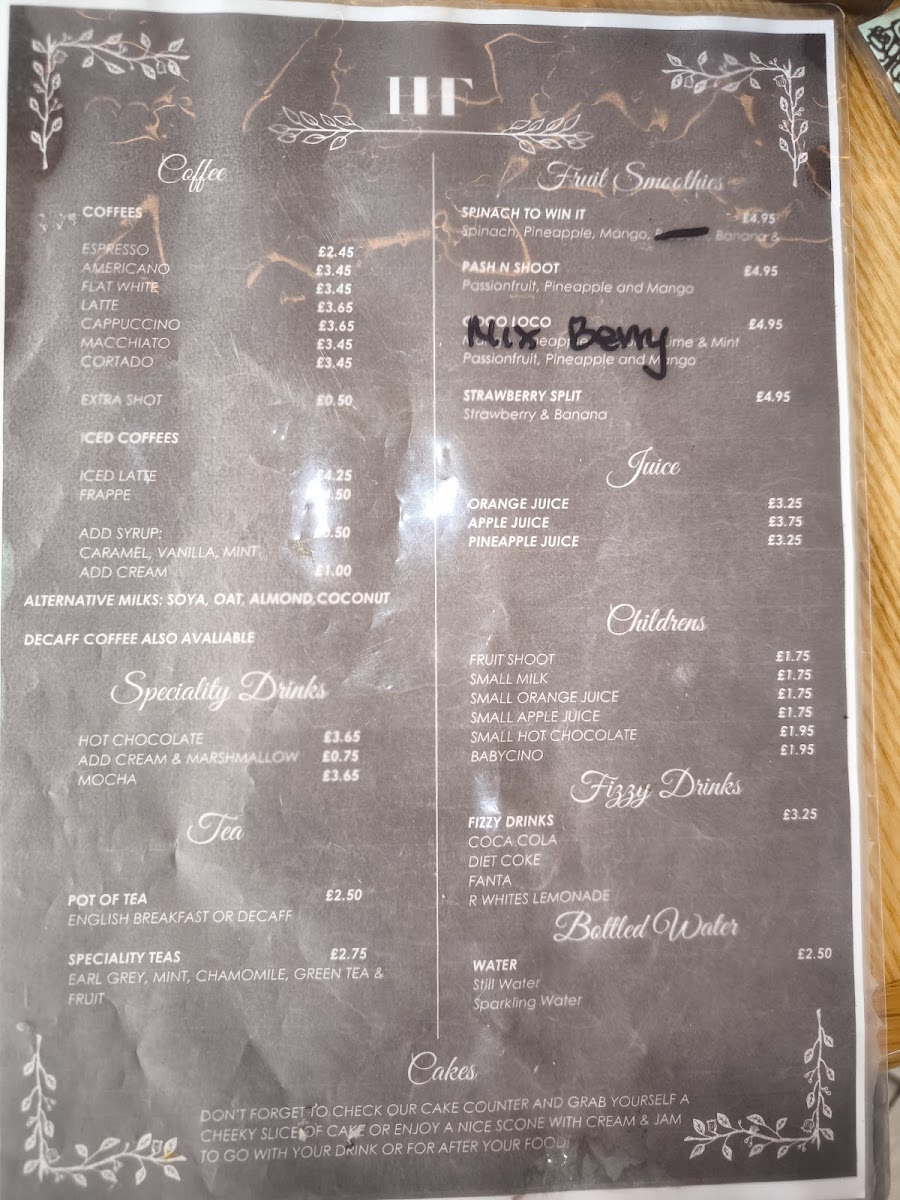 HF
Coffee
COFFEES
ESPRESSO £2.45
AMERICANO £3.45
FLAT WHITE £3.45
LATTE £3.65
CAPPUCCINO £3.65
MACCHIATO £3.45
CORTADO £3.45
EXTRA SHOT £0.50
ICED COFFEES
ICED LATTE £4.25
FRAPPE
ADD SYRUP: £0.50
CARAMEL, VANILLA, MINT
ADD CREAM £1.00
ALTERNATIVE MILKS: SOYA, OAT, ALMOND,COCONUT
DECAFF COFFEE ALSO AVALIABLE
Speciality Drinks
HOT CHOCOLATE £3.65
ADD CREAM & MARSHMALLOW £0.75
MOCHA £3.65
Tea
POT OF TEA £2.50
ENGLISH BREAKFAST OR DECAFF
SPECIALITY TEAS £2.75
EARL GREY, MINT, CHAMOMILE, GREEN TEA &
FRUIT
Fruit Smoothies
SPINACH TO WIN IT £4.95
Spinach, Pineapple, Mango, Banana &
PASH N SHOOT £4.95
Passionfruit, Pineapple and Mango
COCO LOCO £4.95
Mix Berry
Lime & Mint
Passionfruit, Pineapple and Mango
STRAWBERRY SPLIT £4.95
Strawberry & Banana
Juice
ORANGE JUICE £3.25
APPLE JUICE £3.75
PINEAPPLE JUICE £3.25
Childrens
FRUIT SHOOT £1.75
SMALL MILK £1.75
SMALL ORANGE JUICE £1.75
SMALL APPLE JUICE £1.75
SMALL HOT CHOCOLATE £1.95
BABYCINO £1.95
Fizzy Drinks
FIZZY DRINKS £3.25
COCA COLA
DIET COKE
FANTA
R WHITES LEMONADE
Bottled Water
WATER £2.50
Still Water
Sparkling Water
Cakes
DON'T FORGET TO CHECK OUR CAKE COUNTER AND GRAB YOURSELF A
CHEEKY SLICE OF CAKE OR ENJOY A NICE SCONE WITH CREAM & JAM
TO GO WITH YOUR DRINK OR FOR AFTER YOUR FOOD!